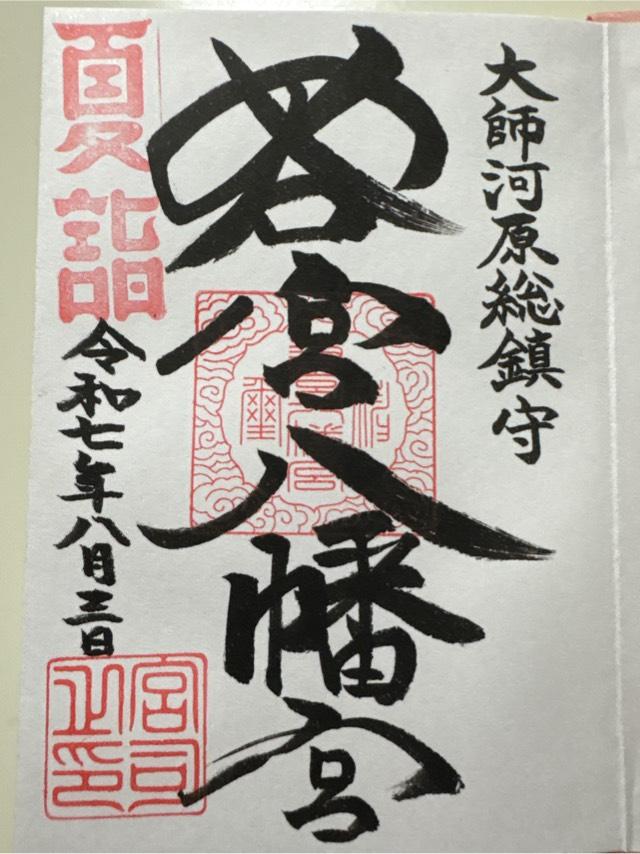 大師河原総鎮守
若宮八幡宮
夏詣
令和七年八月三日
宮司
之印